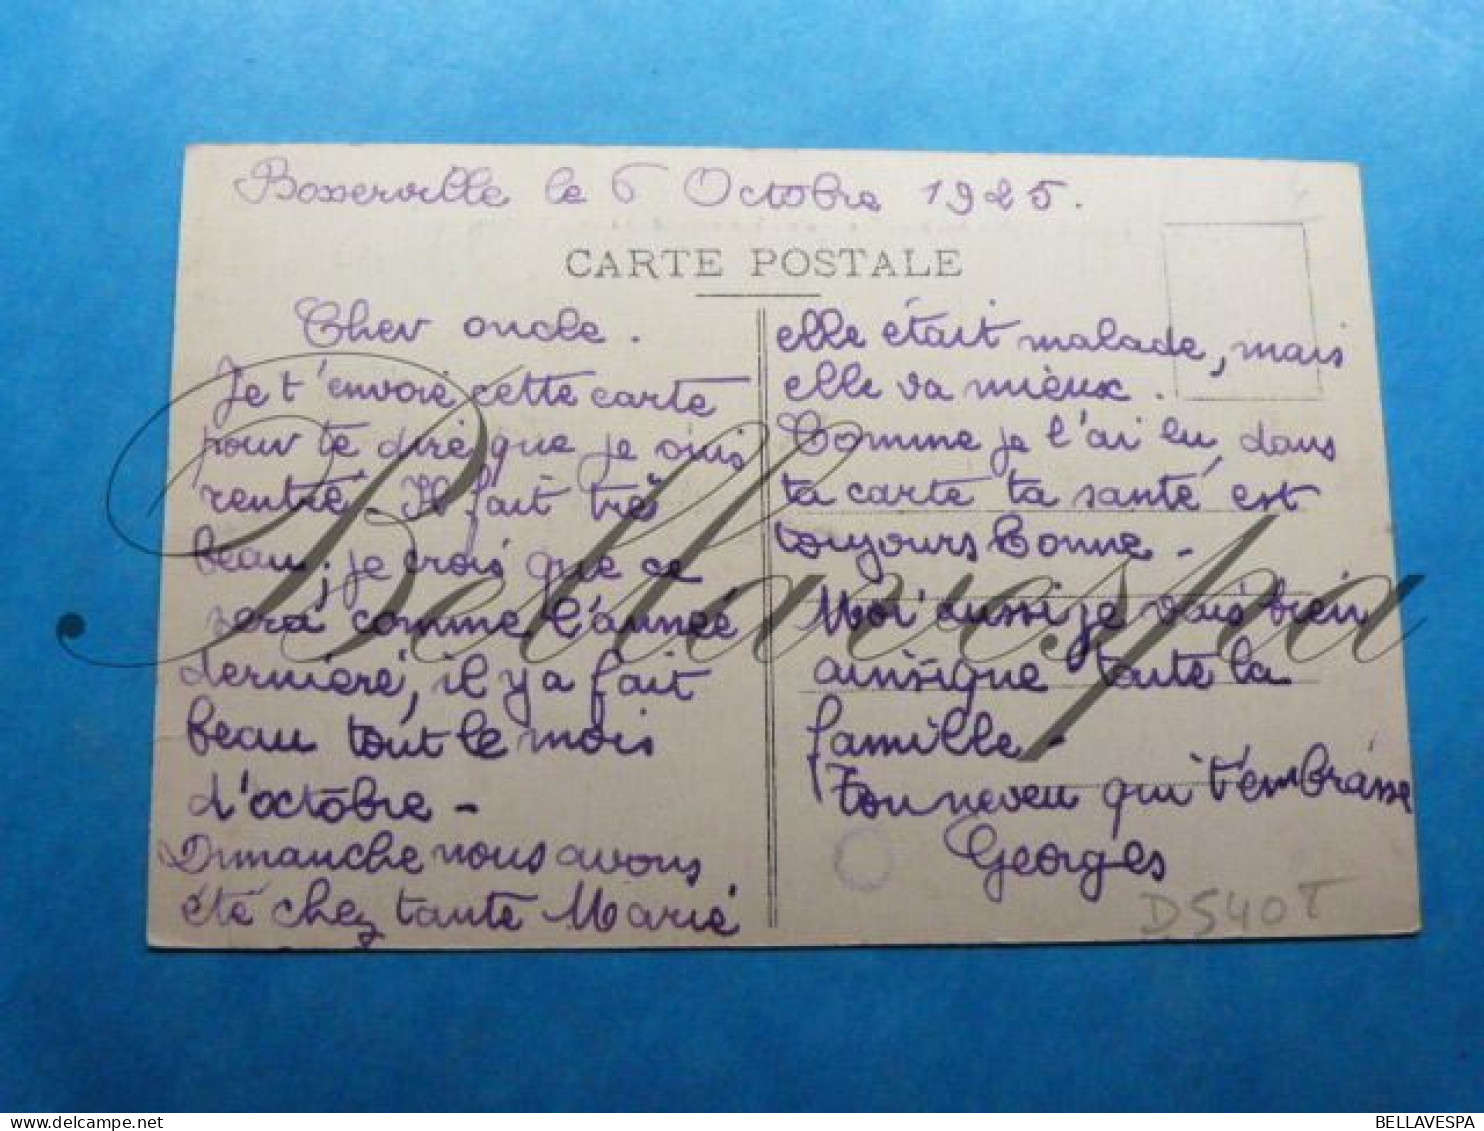 Bosserville le 6 Octobre 1925.
CARTE POSTALE
Cher oncle.
Je t'envoie cette carte
pour te dire que je suis
rentré. Il fait très
beau, je crois que ce
sera comme l'année
dernière, il y a fait
beau tout le mois
d'octobre -
Dimanche nous avons
été chez tante Marie
elle était malade, mais
elle va mieux.
Comme je l'ai lu, dans
ta carte ta santé est
toujours bonne -
Moi aussi je vais bien
ainsi que toute la
famille -
Ton neveu qui t'embrasse
Georges
D540T
Bellavespa
BELLAVESPA